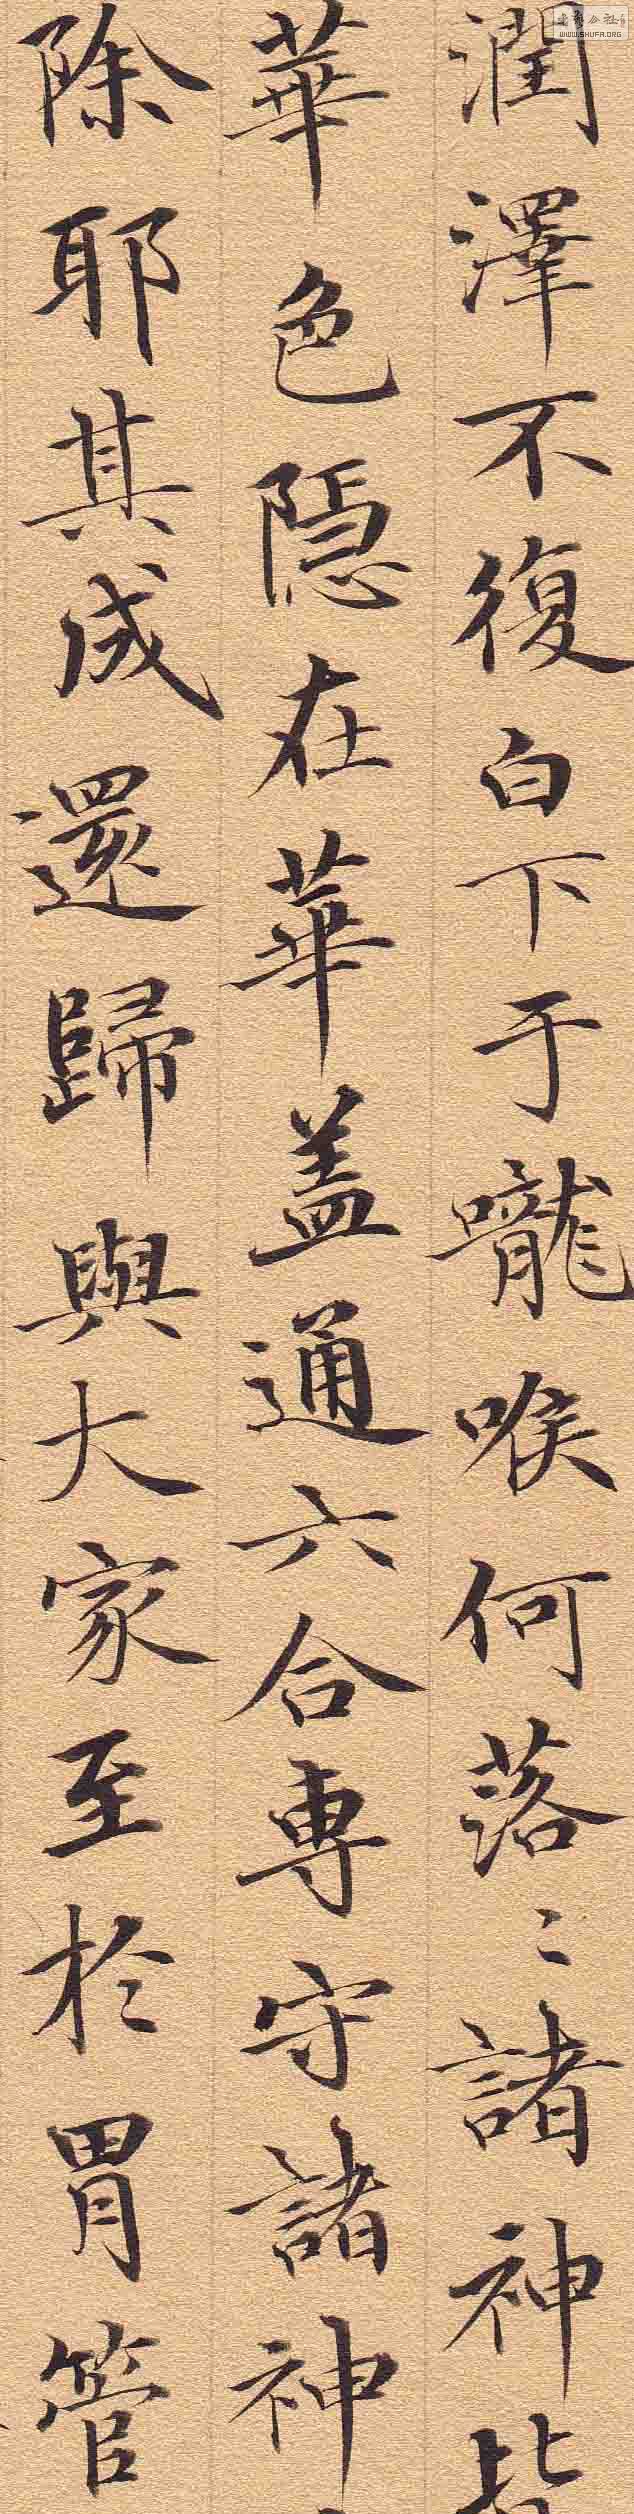 潤澤不復白下于嚨喉何落〻諸神皆
華色隱在華盖通六合專守諸神
除耶其成還歸與大家至於胃管
WWW.SHUFA.ORG